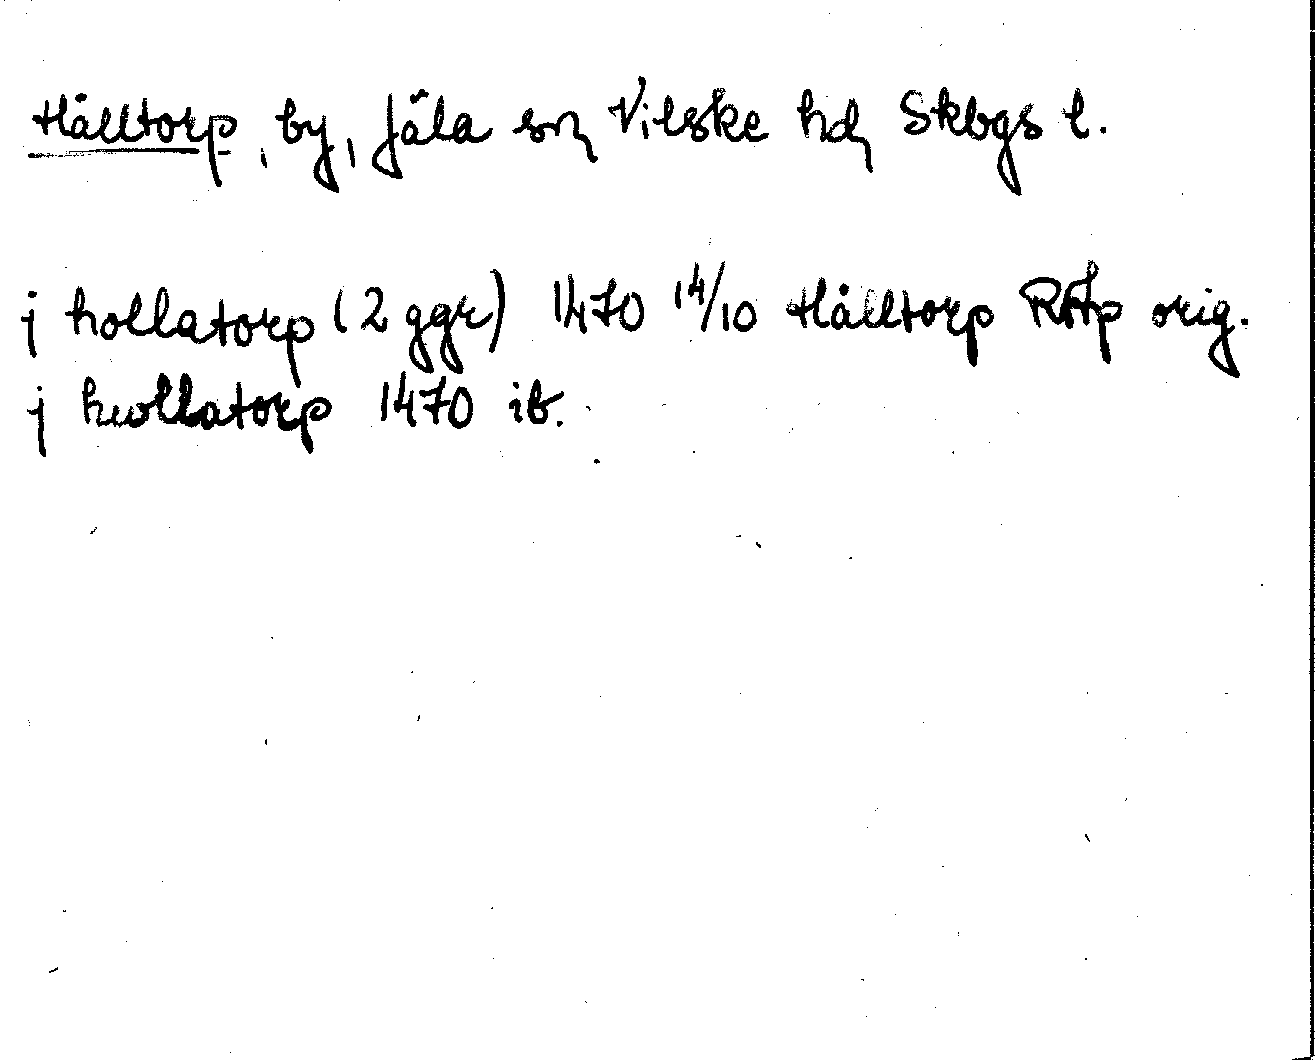 Hålltorp, by, Jäla sn, Vilske hd, Skbgs l.
j hollatorp (2 ggr) 1470 14/10 Hålltorp RAp orig.
j hwllatorp 1470 ib.